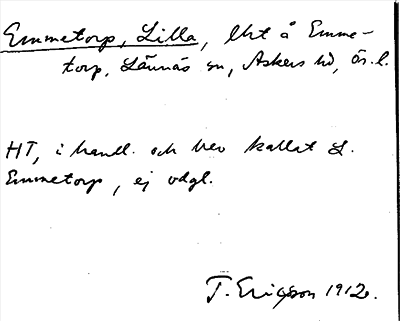 Emmetorp, Lilla, lht å Emme-
torp, Lännäs sn, Askers hd, ör. l.
HT, i handl. och brev kallat L.
Emmetorp, ej vdgl.
T. Ericsson 1912.